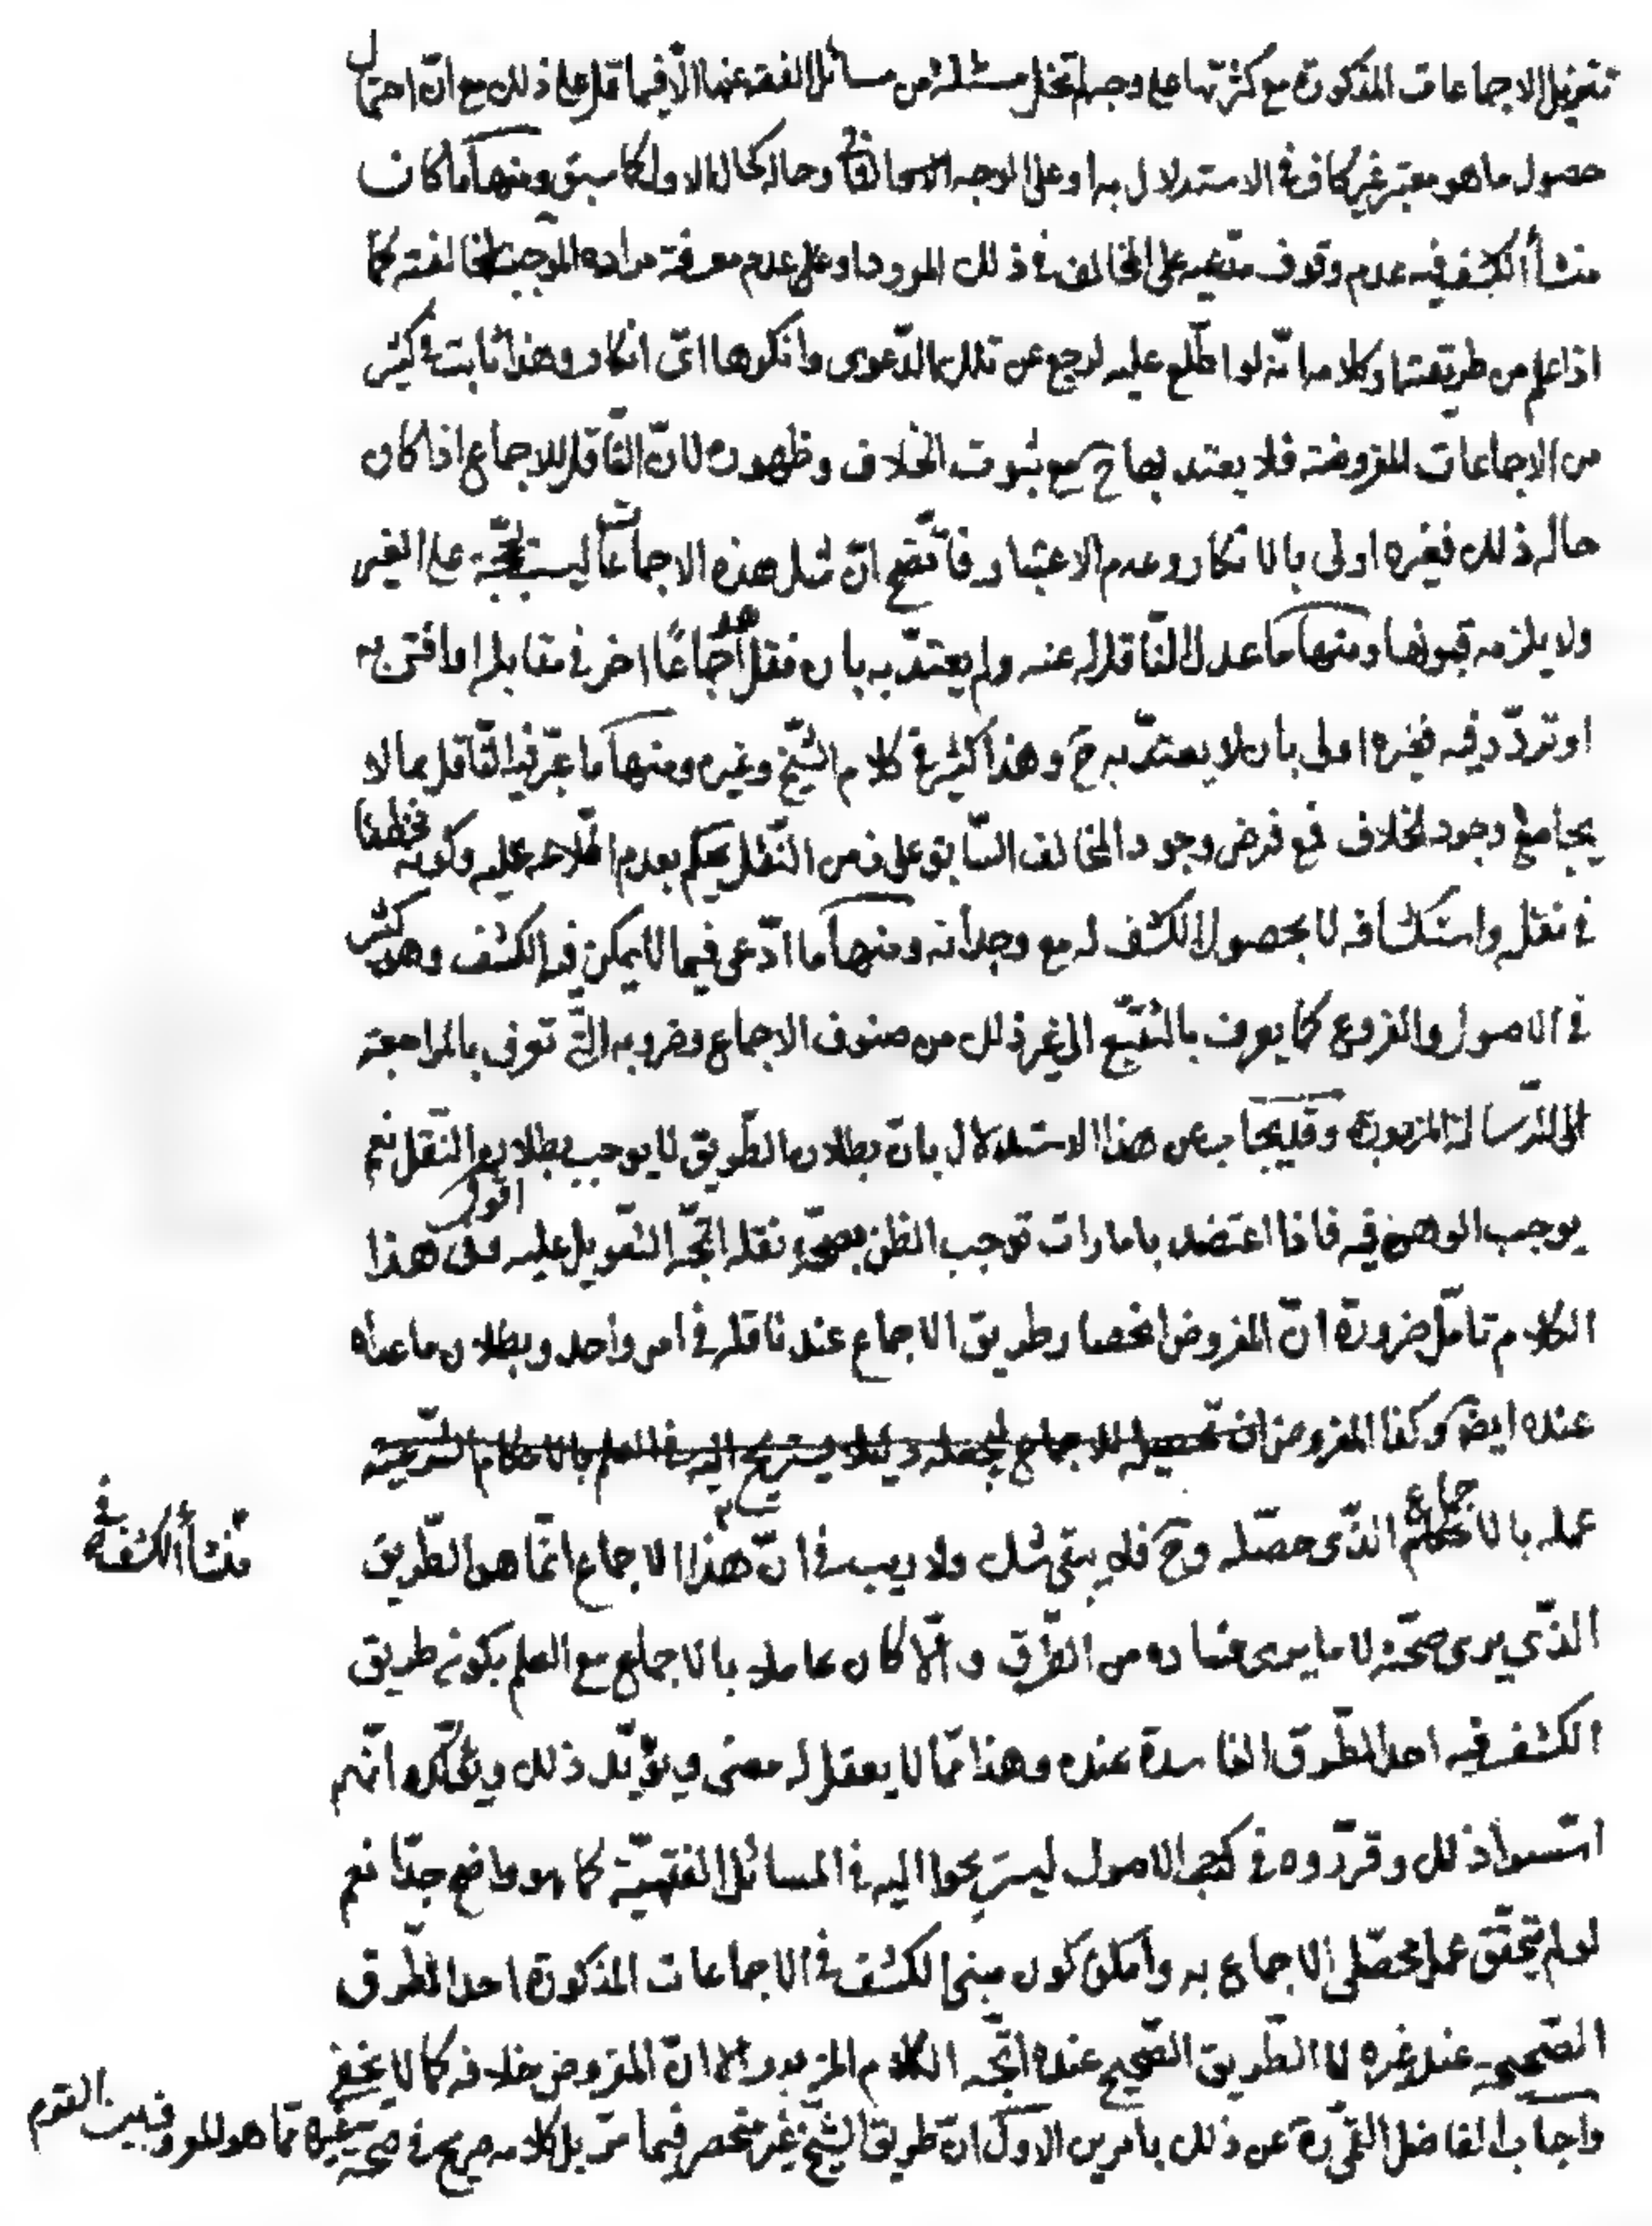 تنزيل الاجماعات المذكورة مع كثرتها على وجه لم تخل مسئلة من مسائل الفقه عنها الّا فيما قل على ذلك مع انّ احتمال
حصول ما هو معتبر غير كاف في الاستدلال به او على الوجه الثاني وحاله كحال الاول كما سبق ومنها ما كان
منشأ الكشف فيه عدم وقوف مدّعيه على المخالف في ذلك المورد او على عدم معرفة مراده الموجب لمخالفته كما
اذا علم من طريقته او كلامه انّه لو اطّلع عليه لرجع عن تلك الدّعوى وانكرها اىّ انكار وهذا ثابت في كثير
من الاجماعات المفروضة فلا يعتد بها ح مع ثبوت الخلاف وظهوره لانّ النّاقل للاجماع اذا كان
حاله ذلك فغيره اولى بالانكار وعدم الاعتبار فاتّضح انّ مثل هذه الاجماعات ليست بحجّة على الغير
ولا يلزمه قبولها ومنها ما عدل النّاقل له عنه ولم يعتدّ به بان نقل اجماعًا اخر في مقابله او افتى به
او تردّد فيه فغيره اولى بان لا يعتدّ به ح وهذا كثير في كلام الشّيخ وغيره ومنها ما عبّر فيه النّاقل بما لا
يجامع وجود الخلاف فمع فرض وجود المخالف السّابق على زمن النّقل يحكم بعدم اطّلاعه عليه وكونه مخطئا
في نقله واستكشافه لا بحصول الكشف له مع وجدانه ومنها ما ادّعى فيما لا يمكن فيه الكشف وهو كثير
في الاصول والفروع كما يعرف بالتّتبّع الى غير ذلك من صنوف الاجماع وضروبه الّتي تعرف بالمراجعة
الى الرّسالة المزبورة وقد يجاب عن هذا الاستدلال بانّ بطلان الطّريق لا يوجب بطلان النّقل نعم
يوجب الوهن فيه فاذا اعتضد بامارات توجب الظن بصحّة نقله اتّجه التّعويل عليه اقول في هذا
الكلام تامّل ضرورة انّ المفروض انحصار طريق الاجماع عند ناقله في امر واحد وبطلان ما عداه
عنده ايضً وكذا المفروض
عمله بالاجماع الّذي حصّله وح فلا يبقى شك ولا ريب في انّ منشأ الكشف في هذا الاجماع انّما هو الطّريق
الذّي يرى صحّته لا ما يرى فساده من الطّرق والّا كان عاملا بالاجماع مع العلم بكونه طريق
الكشف فيه احد الطّرق الفاسدة عنده وهذا ممّا لا يعقل له معنى ويؤيّد ذلك ويؤكّده انّهم
اسّسوا ذلك وقرّروه في كتب الاصول ليستريحوا اليه في المسائل الفقهيّة كما هو واضح جدّا نعم
لو لم يتحقّق عمل محصّلي الاجماع به وامكن كون مبنى الكشف في الاجماعات المذكورة احد الطّرق
الصّحيحة عند غيره لا الطّريق الصّحيح عنده اتّجه الكلام المزبور الا انّ المفروض خلافه كما لا يخفى
واجاب الفاضل عن ذلك بامرين الاوّل انّ طريق الشّيخ غير منحصر فيما مرّ بل كلامه صريح في صحّة غيره ممّا هو المعروف بين القوم